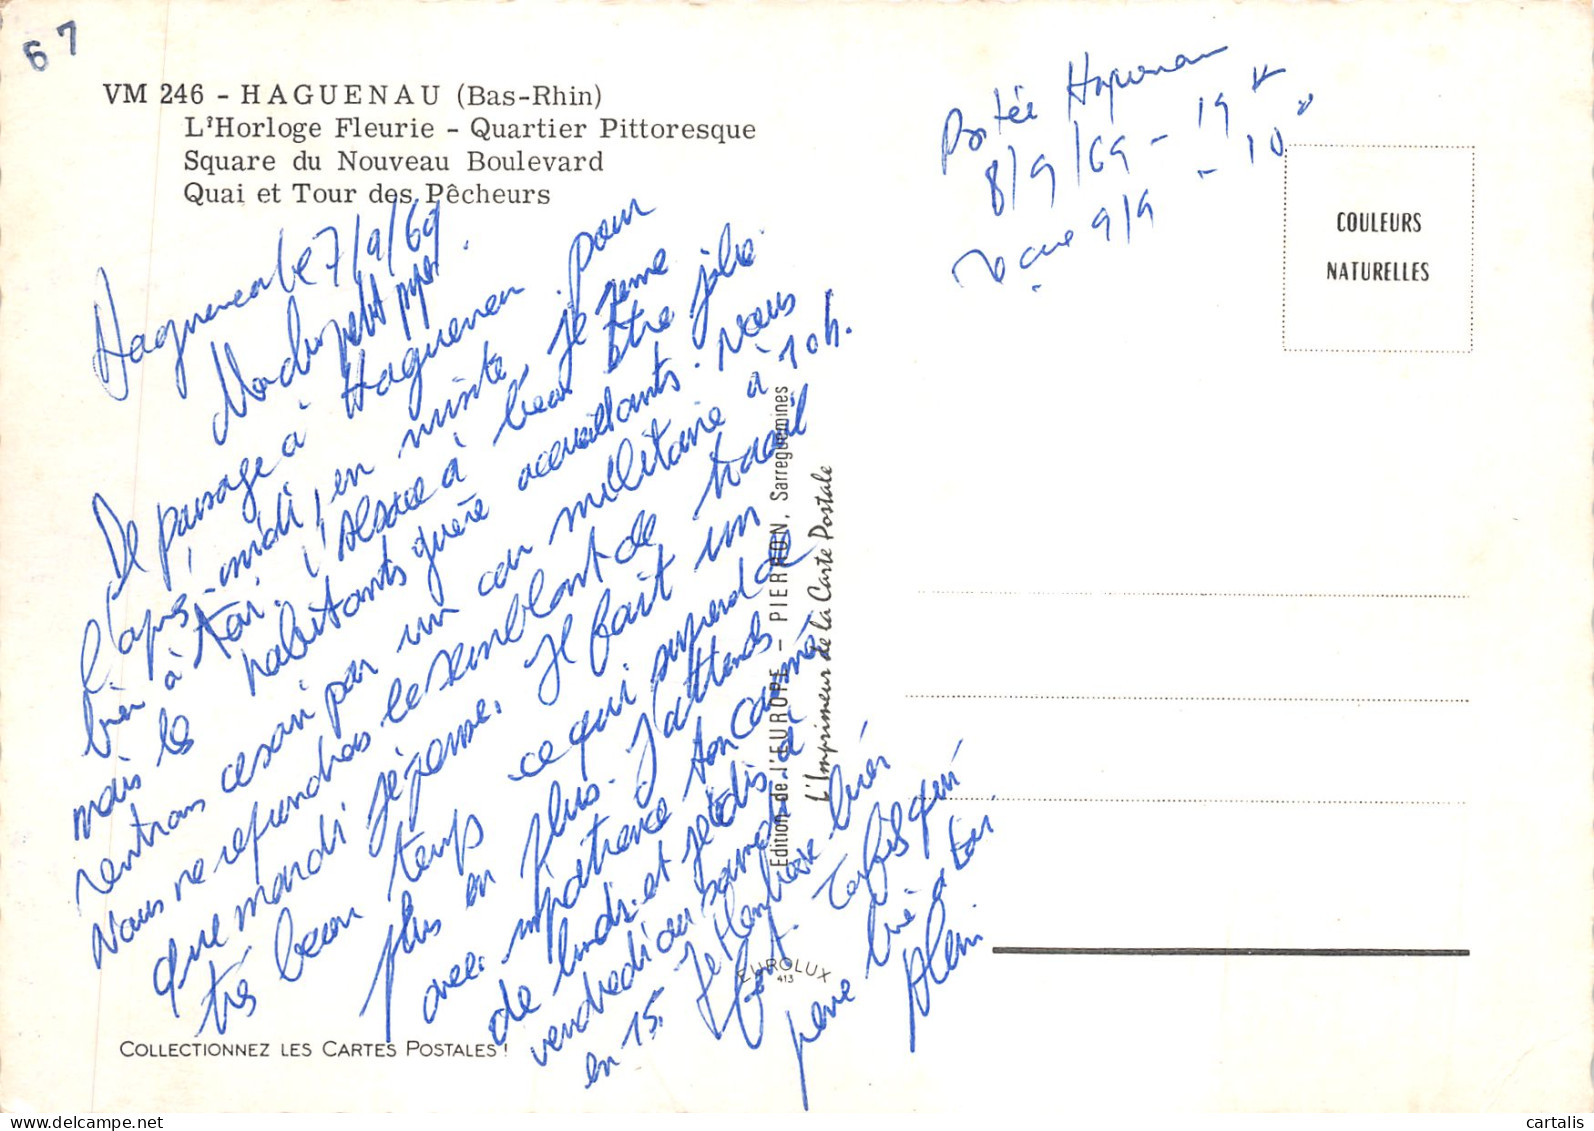 67
VM 246 - HAGUENAU (Bas-Rhin)
L'Horloge Fleurie - Quartier Pittoresque
Square du Nouveau Boulevard
Quai et Tour des Pêcheurs
Haguenau le 7/9/69.
petit
De passage à Haguenau pour
l'après-midi, en visite, je pense
bien à toi. L'Alsace a beau être jolie
mais les habitants guère accueillants. Nous
rentrons ce soir par un car militaire à 10h.
Nous ne reprendrons le semblant de travail
que mardi je pense. Il fait un
très beau temps ce qui surprend de
plus en plus. J'attends
avec impatience ton
de lundi et je te dis à
vendredi ou samedi
en 15. Je t'embrasse bien
fort. qui
pense bien à toi
Alain
Postée Haguenau
8/9/69 - 19
9/9 - 10
COULEURS
NATURELLES
Edition de l'EUROPE - PIERRON, Sarreguemines
L'Imprimeur de la Carte Postale
EUROLUX
413
COLLECTIONNEZ LES CARTES POSTALES !
cartalis
delcampe.net